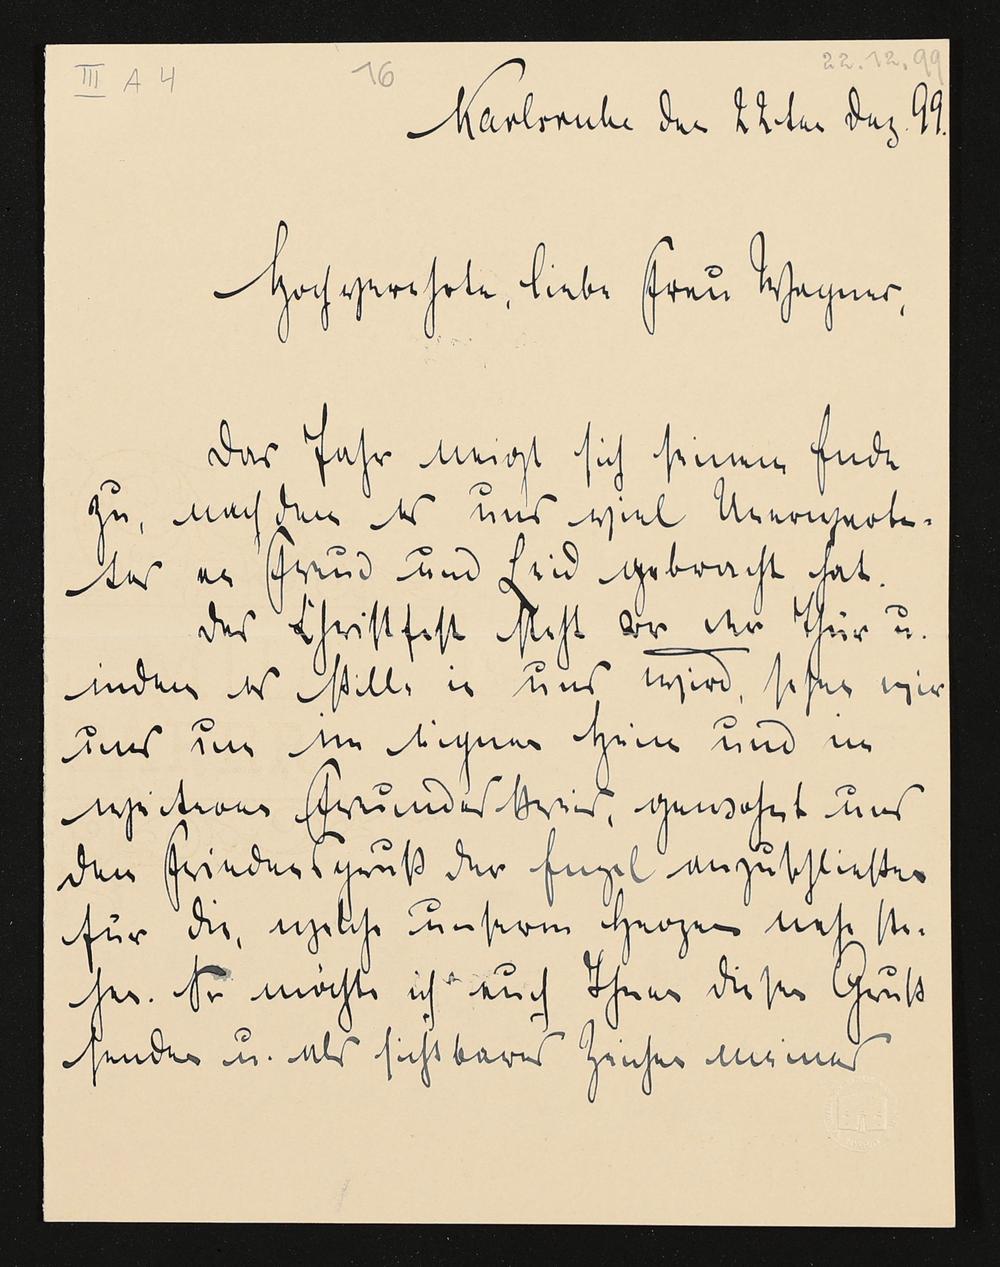 III A 4 16 22.12.99
Karlsruhe den 22ten Dez. 99.
Hochverehrte, liebe Frau Wagner,
Das Jahr neigt sich seinem Ende
zu, nachdem es uns viel Unerwarte-
tes an Freud und Leid gebracht hat.
Das Christfest steht vor der Thür u.
indem es stille in uns wird, sehen wir
uns um im eignen Heim und im
weiteren Freundeskreis, gewohnt uns
dem Friedensgruß der Engel anzuschließen
für die, welche unserm Herzen nahe ste-
hen. So möchte ich auch Ihnen diesen Gruß
senden u. als sichtbares Zeichen meines